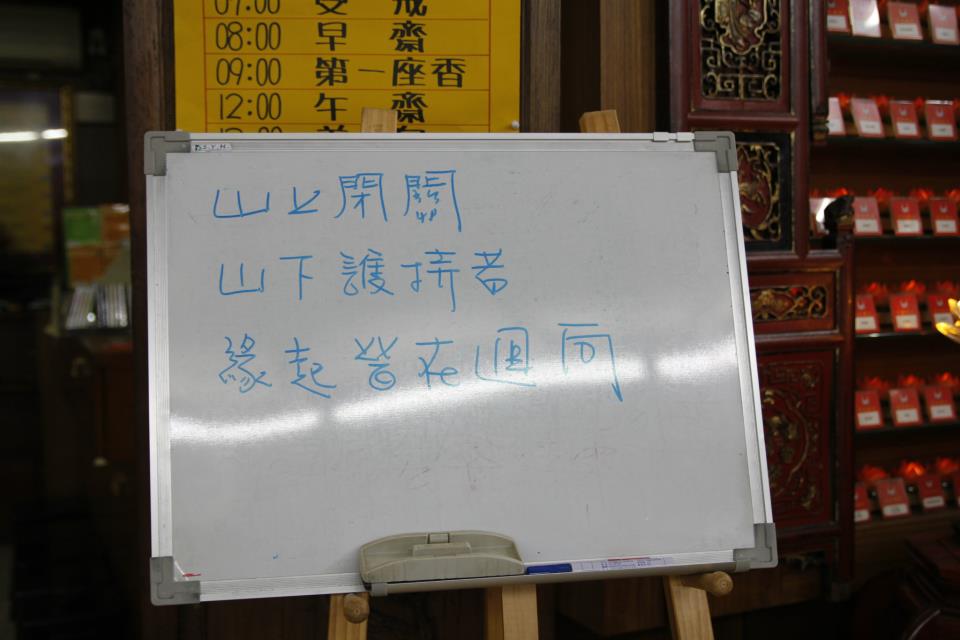 07:00 受 戒
08:00 早 齋
09:00 第一座香
12:00 午 齋
山上閉關
山下護持者
緣起皆在迴向